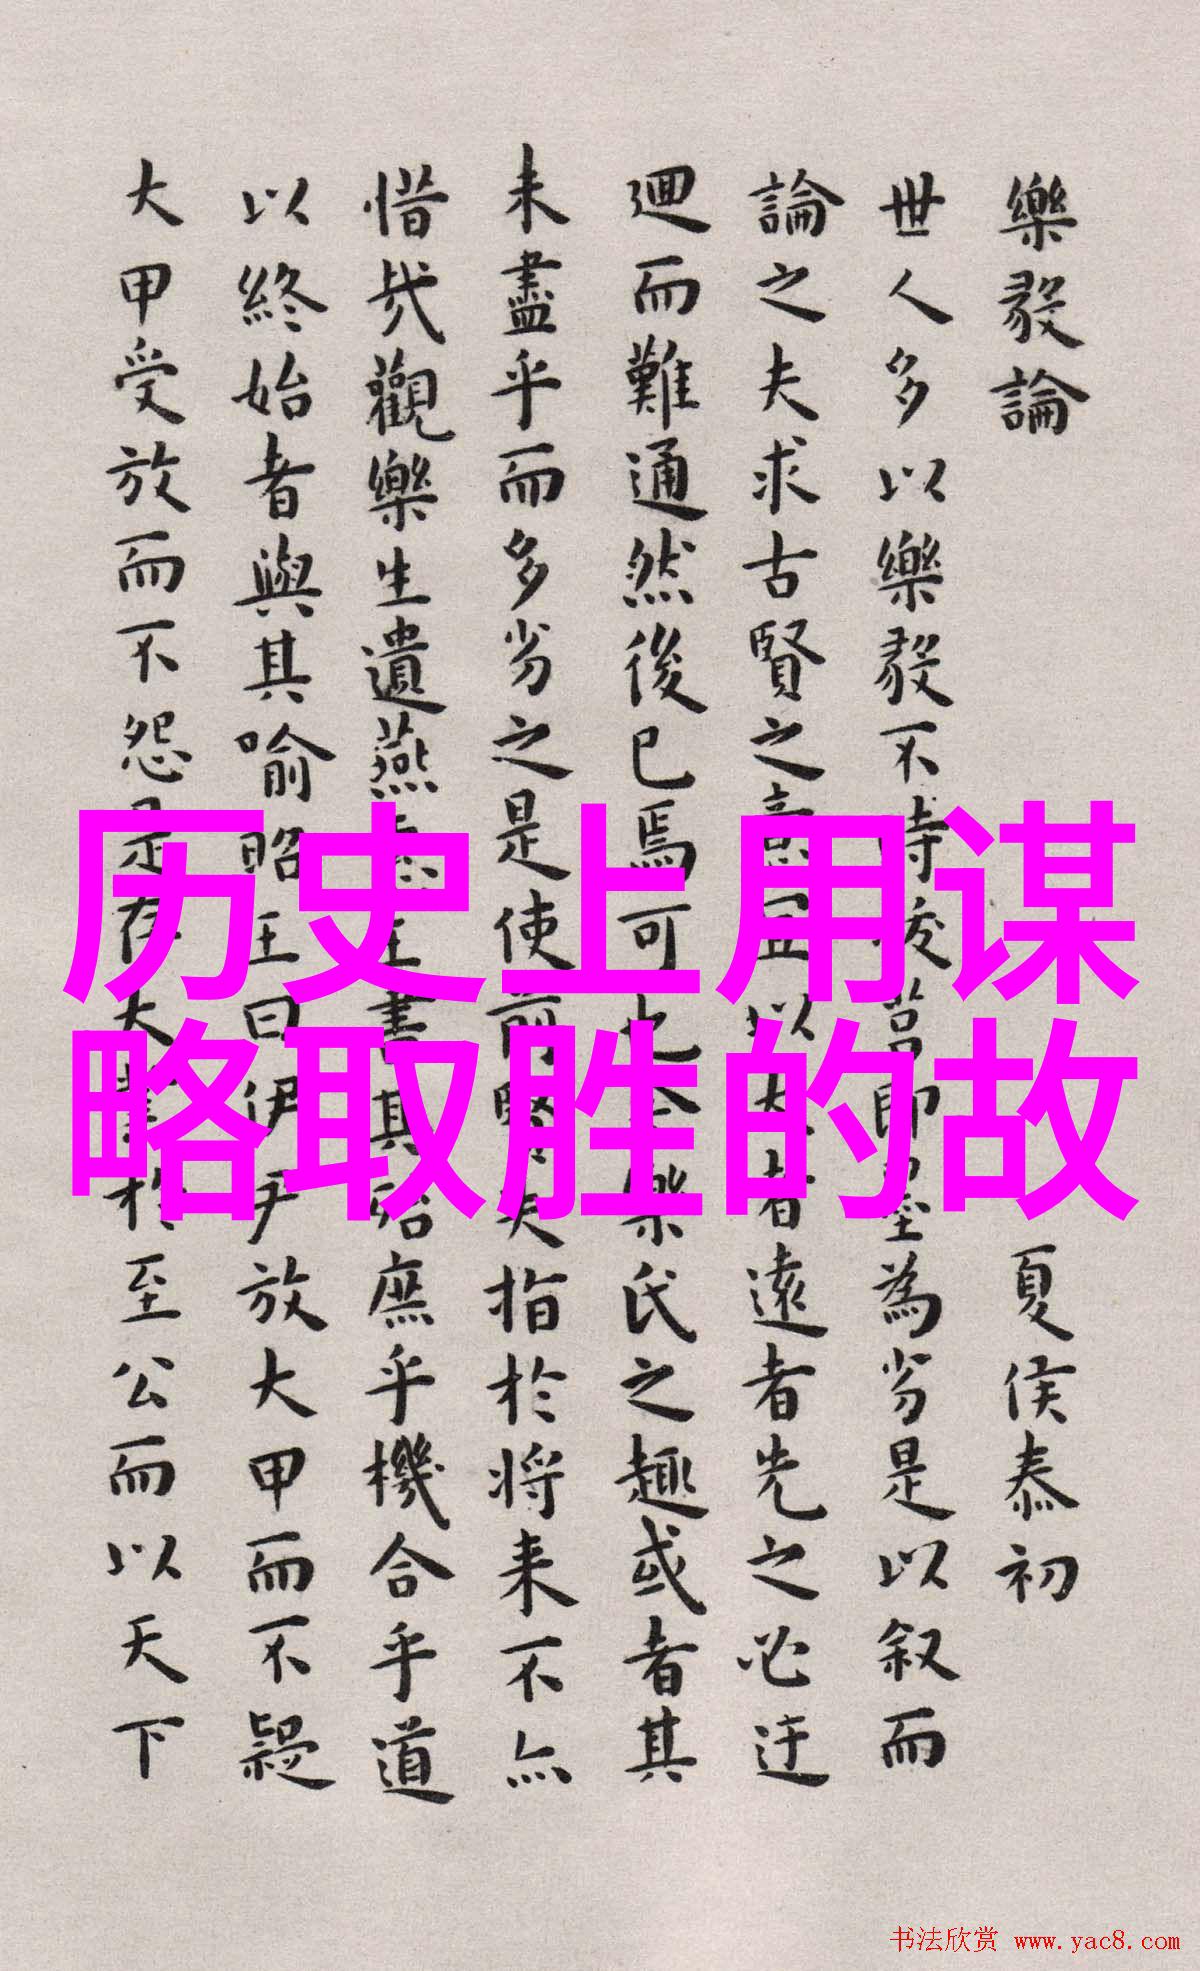 樂毅論 夏侯泰初
世人多以樂毅不時拔莒即墨為劣是以叙而
論之夫求古賢之意宜以大者遠者先之必迂
迴而難通然後已焉可也今樂氏之趣或者其
未盡乎而多劣之是使前賢失指於将来不亦
惜哉觀樂生遺燕惠王書其殆庶乎機合乎道
以終始者與其喻昭王曰伊尹放大甲而不疑
大甲受放而不怨是存大業於至公而以天下
历史上用谋
略取胜的故
书法欣赏 www.yac8.com